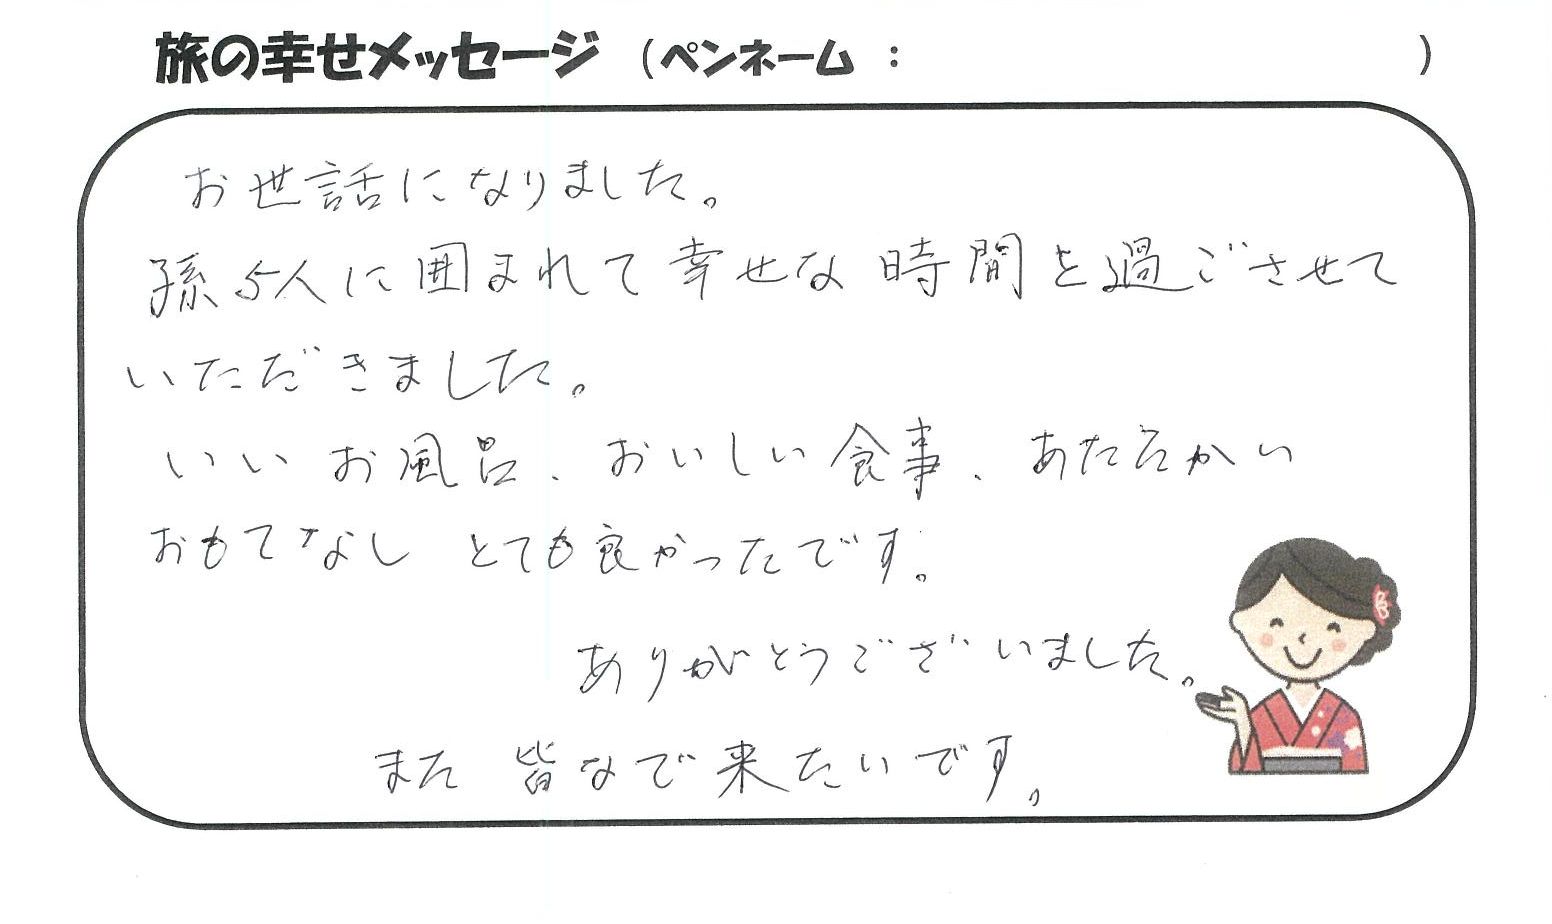 旅の幸せメッセージ (ペンネーム : )
お世話になりました。
孫5人に囲まれて幸せな時間を過ごさせて
いただきました。
いいお風呂、おいしい食事、あたたかい
おもてなし とても良かったです。
ありがとうございました。
また 皆なで来たいです。